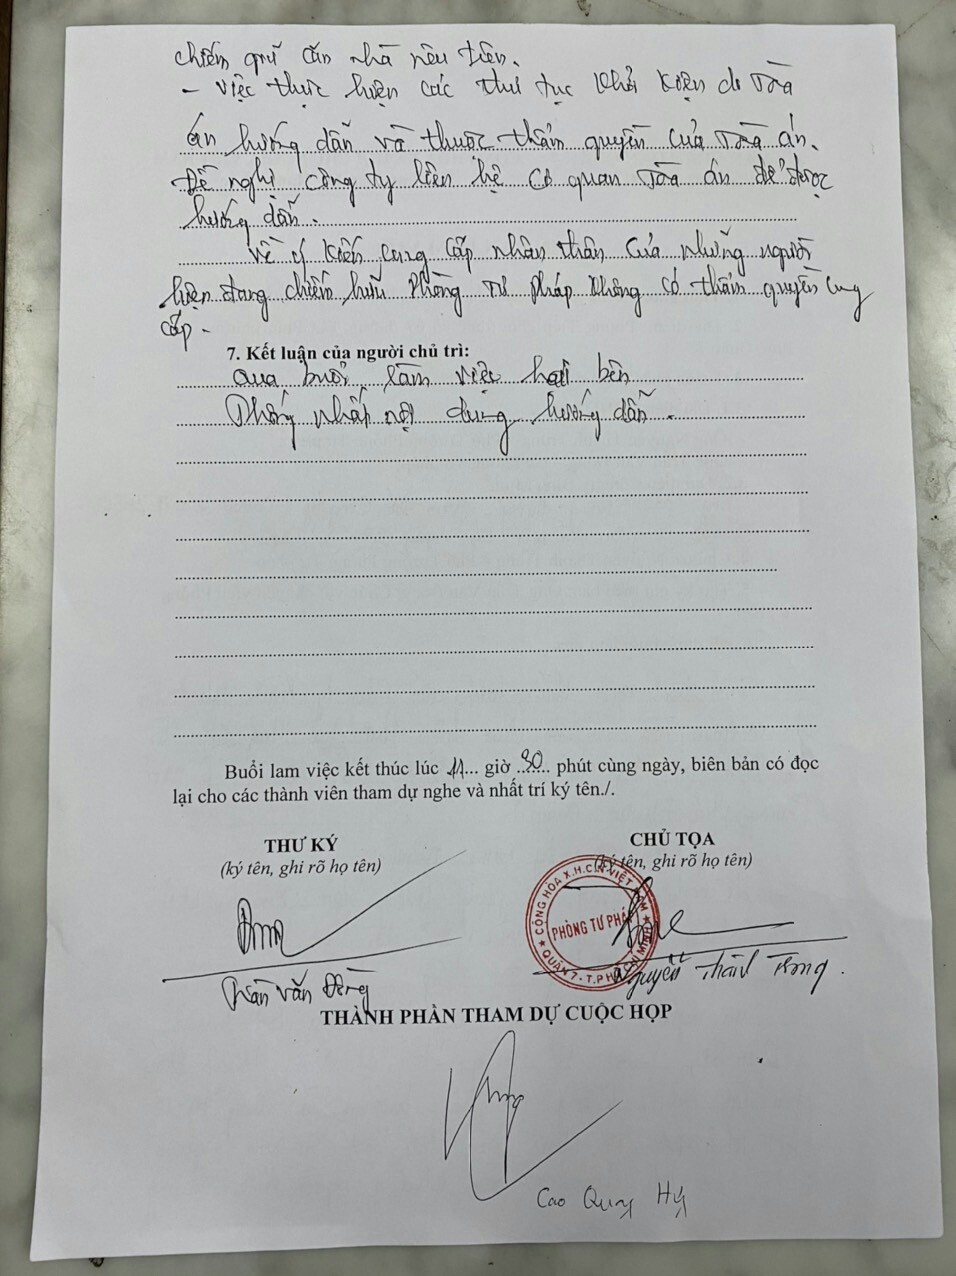 chiếm giữ căn nhà nêu trên.
- Việc thực hiện các thủ tục khởi kiện do Tòa
án hướng dẫn và thuộc thẩm quyền của Tòa án.
Đề nghị công ty liên hệ cơ quan Tòa án để được
hướng dẫn.
Về ý kiến cung cấp nhân thân của những người
hiện đang chiếm hữu Phòng Tư pháp không có thẩm quyền cung
cấp.
7. Kết luận của người chủ trì:
Qua buổi làm việc hai bên
Thống nhất nội dung hướng dẫn.
Buổi lam việc kết thúc lúc 11 giờ 30 phút cùng ngày, biên bản có đọc
lại cho các thành viên tham dự nghe và nhất trí ký tên./.
THƯ KÝ
(ký tên, ghi rõ họ tên)
Trần Văn
CHỦ TỌA
(ký tên, ghi rõ họ tên)
CỘNG HÒA X.H.C.N VIỆT NAM
PHÒNG TƯ PHÁP
QUẬN 7 - T.P HỒ CHÍ MINH
Nguyễn Thành
THÀNH PHẦN THAM DỰ CUỘC HỌP
Cao Quang